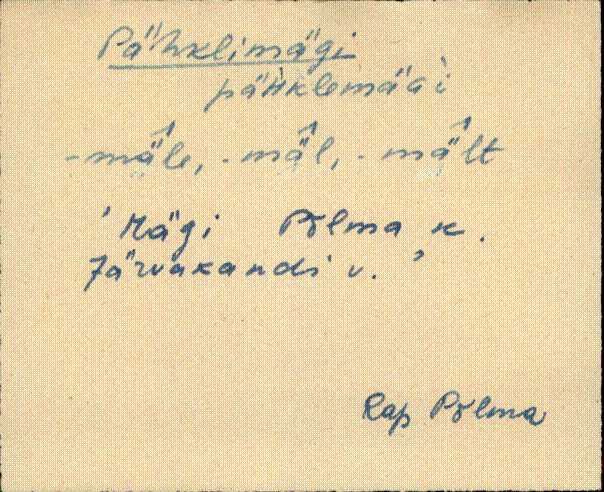 Pähklimägi
pähklemäGì
-mä̂le, -mä̂l, -mä̂lt
'Mägi Põlma k.
Järvakandi v.'
Rap Põlma